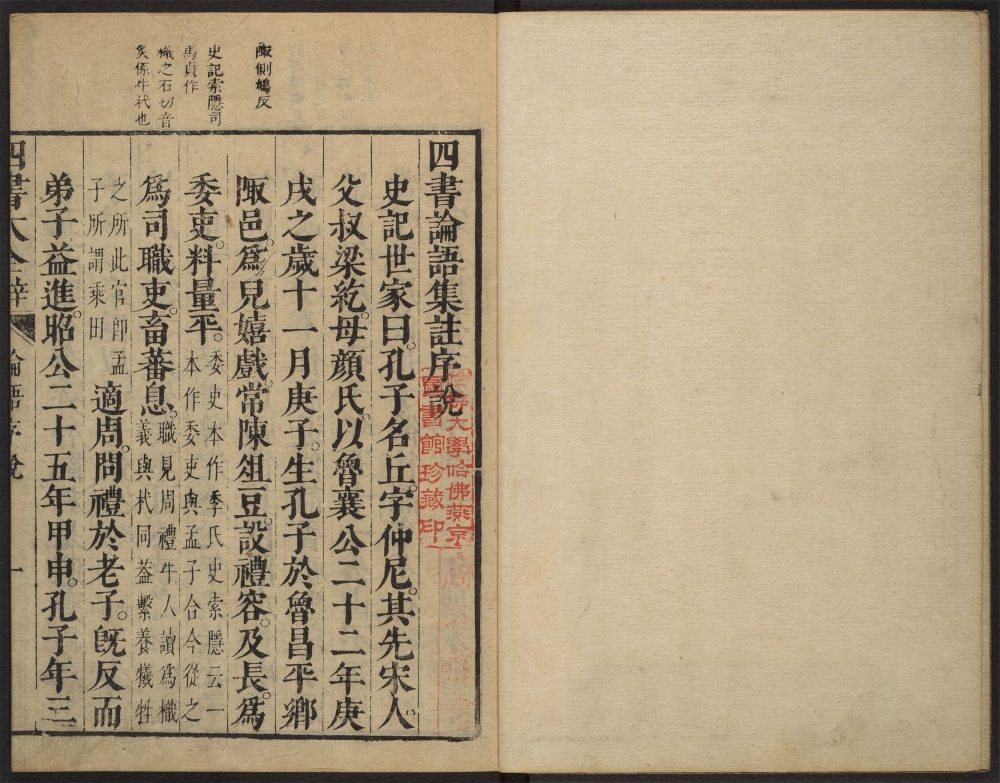 陬側鳩反
史記索隱司
馬貞作
樴之石切音
炙係牛杙也
四書論語集註序說
史記世家曰。孔子名丘。字仲尼。其先宋人。
父叔梁紇。母顏氏。以魯襄公二十二年庚
戌之歲十一月庚子。生孔子於魯昌平鄉
陬邑。爲兒嬉戲。常陳俎豆。設禮容。及長。爲
委吏。料量平。委吏本作季氏史索隱云一
本作委吏與孟子合今從之
爲司職吏。畜蕃息。職見周禮牛人讀爲樴
義與杙同蓋繫養犧牲
之所此官卽孟
子所謂乘田
適周。問禮於老子。旣反而
弟子益進。昭公二十五年甲申。孔子年三
四書大全辯
論語序說
一
哈佛大學哈佛燕京
圖書館珍藏印